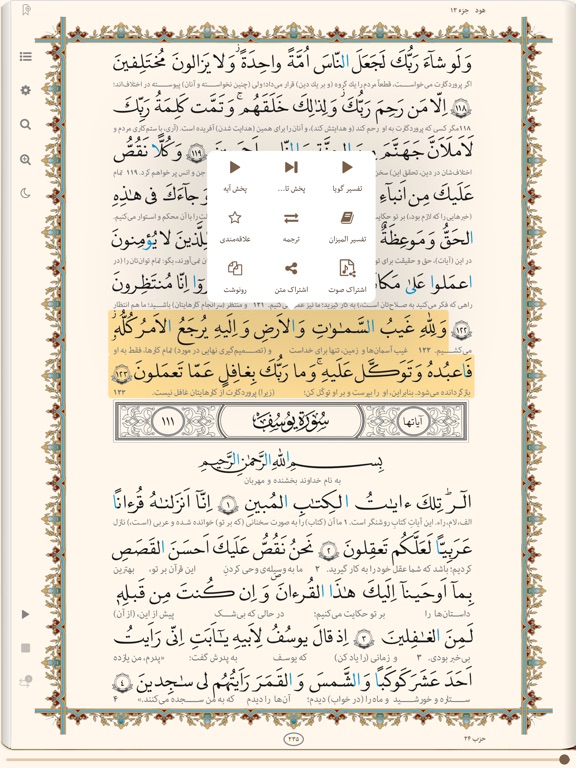 هود جزء ۱۲
وَلَو شاءَ رَبُّكَ لَجَعَلَ النّاسَ أُمَّةً واحِدَةً ۖ وَلا يَزالونَ مُختَلِفينَ
اگر پروردگارت می‌خواست، قطعاً مردم را یک گروه (و بر یک دین) قرار می‌داد؛ ولی (چنین نخواسته و آنان) پیوسته در اختلاف‌اند؛
۱۱۸ إِلّا مَن رَحِمَ رَبُّكَ ۚ وَلِذٰلِكَ خَلَقَهُم ۗ وَتَمَّت كَلِمَةُ رَبِّكَ
۱۱۸ مگر کسی که پروردگارت به او رحم کند (و هدایتش کند). و آنان را برای همین (هدایت شدن) آفریده است. (آری، با ستم‌کاری مردم و
لَأَملَأَنَّ جَهَنَّمَ ۱۱۹ وَكُلًّا نَقُصُّ
اختلاف‌شان در دین، تحقق این) جن و انس پر خواهم کرد. ۱۱۹ تمام
عَلَيكَ مِن أَنباءِ وَجاءَكَ في هٰذِهِ
(خبرهایی را که لازم بود،) بر تو را با آن محکم و استوار می‌کنیم.
الحَقُّ وَمَوعِظَةٌ لِلَّذينَ لا يُؤمِنونَ
در این (آیات)، حق و نمی‌آورند، بگو: تمام توان‌تان را (در
اعمَلوا عَلىٰ إِنّا مُنتَظِرونَ
راهی که فکر می‌کنید به صلاح‌تان است،) به کار گیرید؛ ما نیز عمل می‌کنیم. ۱۲۱ و منتظر (سرانجام کارهایتان) باشید؛ ما هم انتظار
پخش آیه پخش تا... تفسیر گویا
علاقه‌مندی ترجمه تفسیر المیزان
رونوشت اشتراک متن اشتراک صوت
۱۲۲ وَلِلَّهِ غَيبُ السَّماواتِ وَالأَرضِ وَإِلَيهِ يُرجَعُ الأَمرُ كُلُّهُ
می‌کشیم. ۱۲۳ غیب آسمان‌ها و زمین، تنها برای خداست و (تصمیم‌گیری نهایی در مورد) تمام کارها، فقط به او
فَاعبُدهُ وَتَوَكَّل عَلَيهِ ۚ وَما رَبُّكَ بِغافِلٍ عَمّا تَعمَلونَ ۱۲۳
بازگردانده می‌شود. بنابراین، او را بپرست و بر او توکل کن؛ (زیرا) پروردگارت از کارهایتان غافل نیست. ۱۲۳
آیاتها سُورَةُ يُوسُفَ ۱۱۱
بِسمِ اللَّهِ الرَّحمٰنِ الرَّحيمِ
به نام خداوند بخشنده و مهربان
الر ۚ تِلكَ ءاياتُ الكِتابِ المُبينِ ۱ إِنّا أَنزَلناهُ قُرءانًا
الف، لام، راء. این آیاتِ کتابِ روشنگر است. ۱ ما آن (کتاب) را به صورت سخنانی (که بر تو) خوانده شده و عربی (است،) نازل
عَرَبِيًّا لَعَلَّكُم تَعقِلونَ ۲ نَحنُ نَقُصُّ عَلَيكَ أَحسَنَ القَصَصِ
کردیم؛ باشد که شما عقل خود را به کار گیرید. ۲ ما به وسیله‌ی وحی کردنِ این قرآن بر تو، بهترین
بِما أَوحَينا إِلَيكَ هٰذَا القُرءانَ وَإِن كُنتَ مِن قَبلِهِ
داستان‌ها را بر تو حکایت می‌کنیم؛ در حالی که بی‌شک پیش از این، (از آن)
لَمِنَ الغافِلينَ ۳ إِذ قالَ يوسُفُ لِأَبيهِ يا أَبَتِ إِنّي رَأَيتُ
بی‌خبر بودی. ۳ و زمانی (را یاد کن) که یوسف به پدرش گفت: «پدرم، من یازده
أَحَدَ عَشَرَ كَوكَبًا وَالشَّمسَ وَالقَمَرَ رَأَيتُهُم لي ساجِدينَ ۴
ستاره و خورشید و ماه را (در خواب) دیدم؛ آن‌ها را دیدم که به من سجده می‌کنند.» ۴
۲۳۵
حزب ۲۴